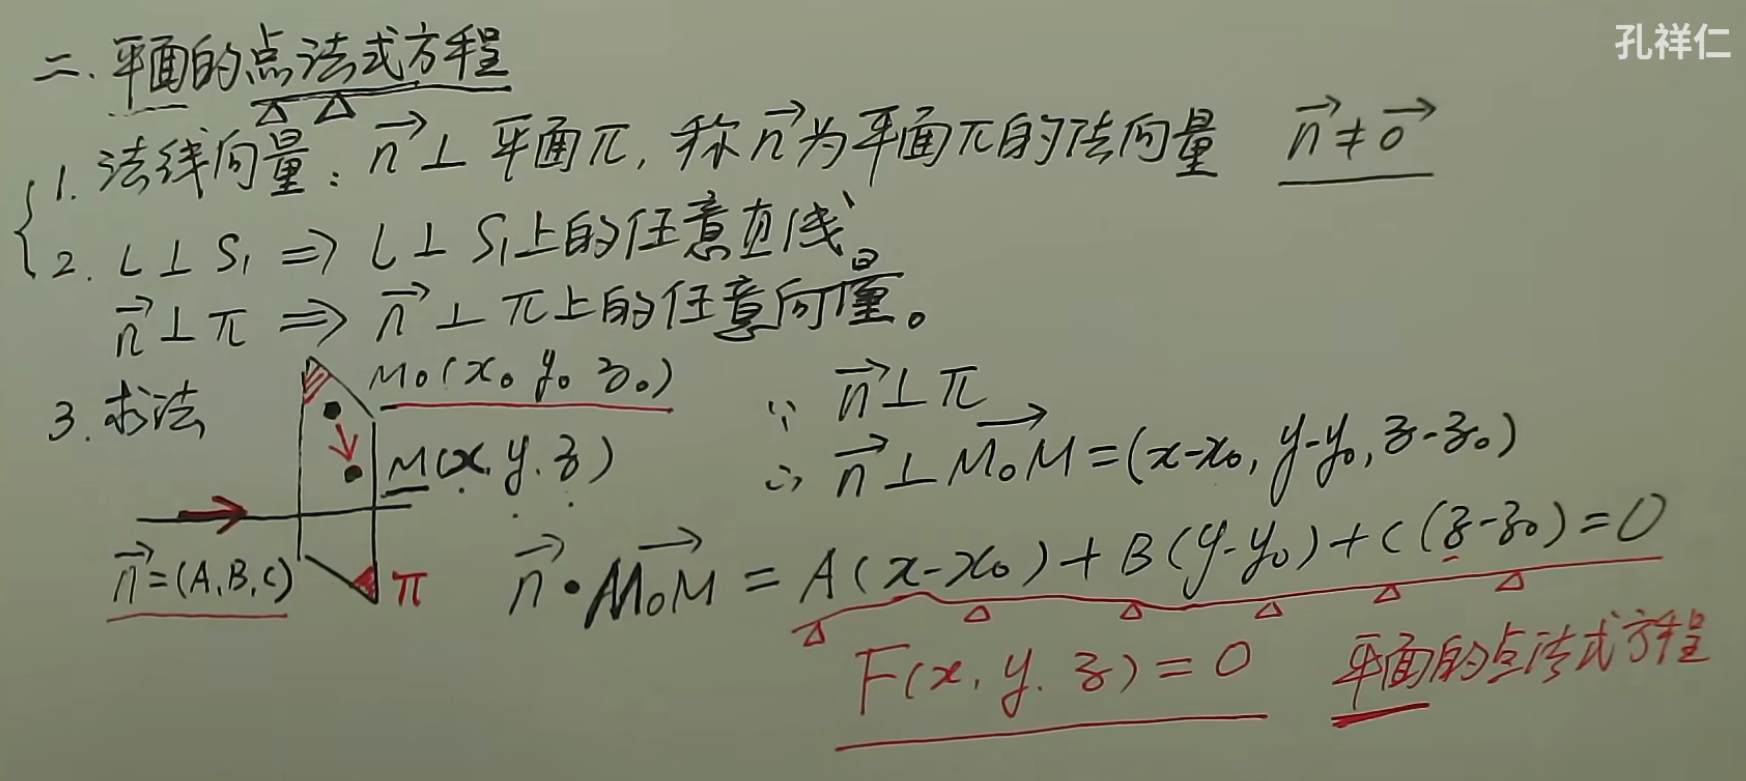 孔祥仁
二. 平面的点法式方程
1. 法线向量: n⃗⊥平面π, 称n⃗为平面π的法向量 n⃗≠0⃗
2. L⊥S₁ ⇒ L⊥S₁上的任意直线。
n⃗⊥π ⇒ n⃗⊥π上的任意向量。
3. 求法
M₀(x₀ y₀ z₀)
M(x, y, z)
n⃗=(A,B,C)
π
∵ n⃗⊥π
∴ n⃗⊥M₀M⃗=(x-x₀, y-y₀, z-z₀)
n⃗·M₀M⃗ = A(x-x₀)+B(y-y₀)+C(z-z₀)=0
F(x, y, z)=0 平面的点法式方程